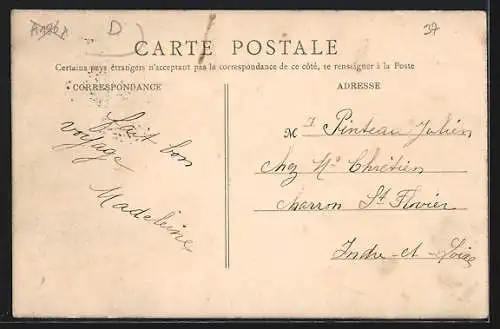 A1961
D
37
CARTE POSTALE
Certains pays étrangers n'acceptent pas la correspondance de ce côté, se renseigner à la Poste
CORRESPONDANCE
ADRESSE
Fait bon
voyage
Madeleine
M Pinteau Julien
chez Mr Chrétien
charron St Flovier
Indre-et-Loire